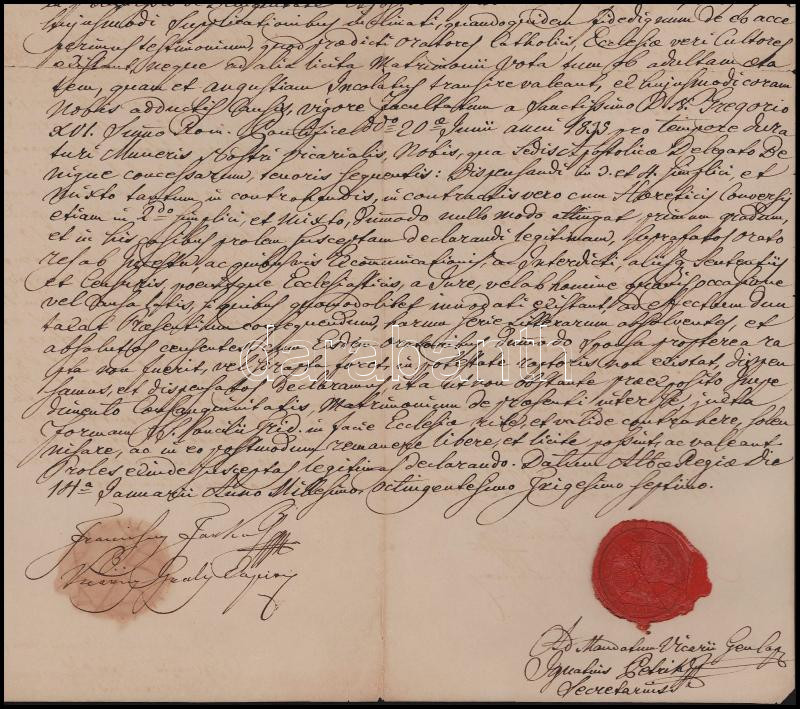 hujusmodi Supplicationibus inclinati, quandoquidem fidedignum de eo acce
perimus testimonium, quod praedicti Oratores Catholici, Ecclesiae veri Cultores
existant, neque ad alia licita Matrimonii vota tum ob adultam aeta
tem, quam et angustiam Incolatus transire valeant, el hujusmodi coram
Nobis adductis Causis, vigore facultatum a Sanctissimo D. N. Gregorio
XVI. Summo Rom. Pontifice ddo 20a Junii anni 1835 pro tempore dura
turi Muneris Nostri Vicarialis, Nobis, qua Sedis Apostolicae Delegato Be
nigne concessarum, tenoris sequentis: Dispensandi in 3. et 4. simplici, et
mixto tantum in contrahendis, in contractis vero cum Haereticis Conversis
etiam in 2do simplici, et mixto, dummodo nullo modo attingat primum gradum,
et in his casibus prolem susceptam declarandi legitimam, suprafatos Orato
res ab incestu, ac quibusvis Excommunicationis, ac Interdicti, aliisq sententiis
et Censuris, poenisque Ecclesiasticis, a Jure, vel ab homine quavis occasione
vel Causa latis, si quibus quomodolibet innodati existant, ad effectum dun
taxat Praesentium consequendum, harum serie litterarum absolventes, et
absolutos censentes, cum Eisdem Oratoribus, dummodo Sponsa propterea ra
pta non fuerit, vel si rapta foret, in potestate raptoris non existat, dispen
samus, et dispensatos declaramus, ita ut non obstante praeexposito Impe
dimento Consanguinitatis, Matrimonium de praesenti inter se, juxta
formam S. Concilii Trid. in facie Ecclesiae rite, et valide contrahere, solem
nisare, ac in eo postmodum remanere libere, et licite possint, ac valeant
Proles exinde susceptas legitimas declarando. Datum Albae Regiae Die
14a Januarii Anno Millesimo Octingentesimo Trigesimo septimo.
databanth
Franciscus Farkas
Vicarius Gralis Capitis
Ad Mandatum Vicarii Gen Cap
Ignatius Petrik
Secretarius